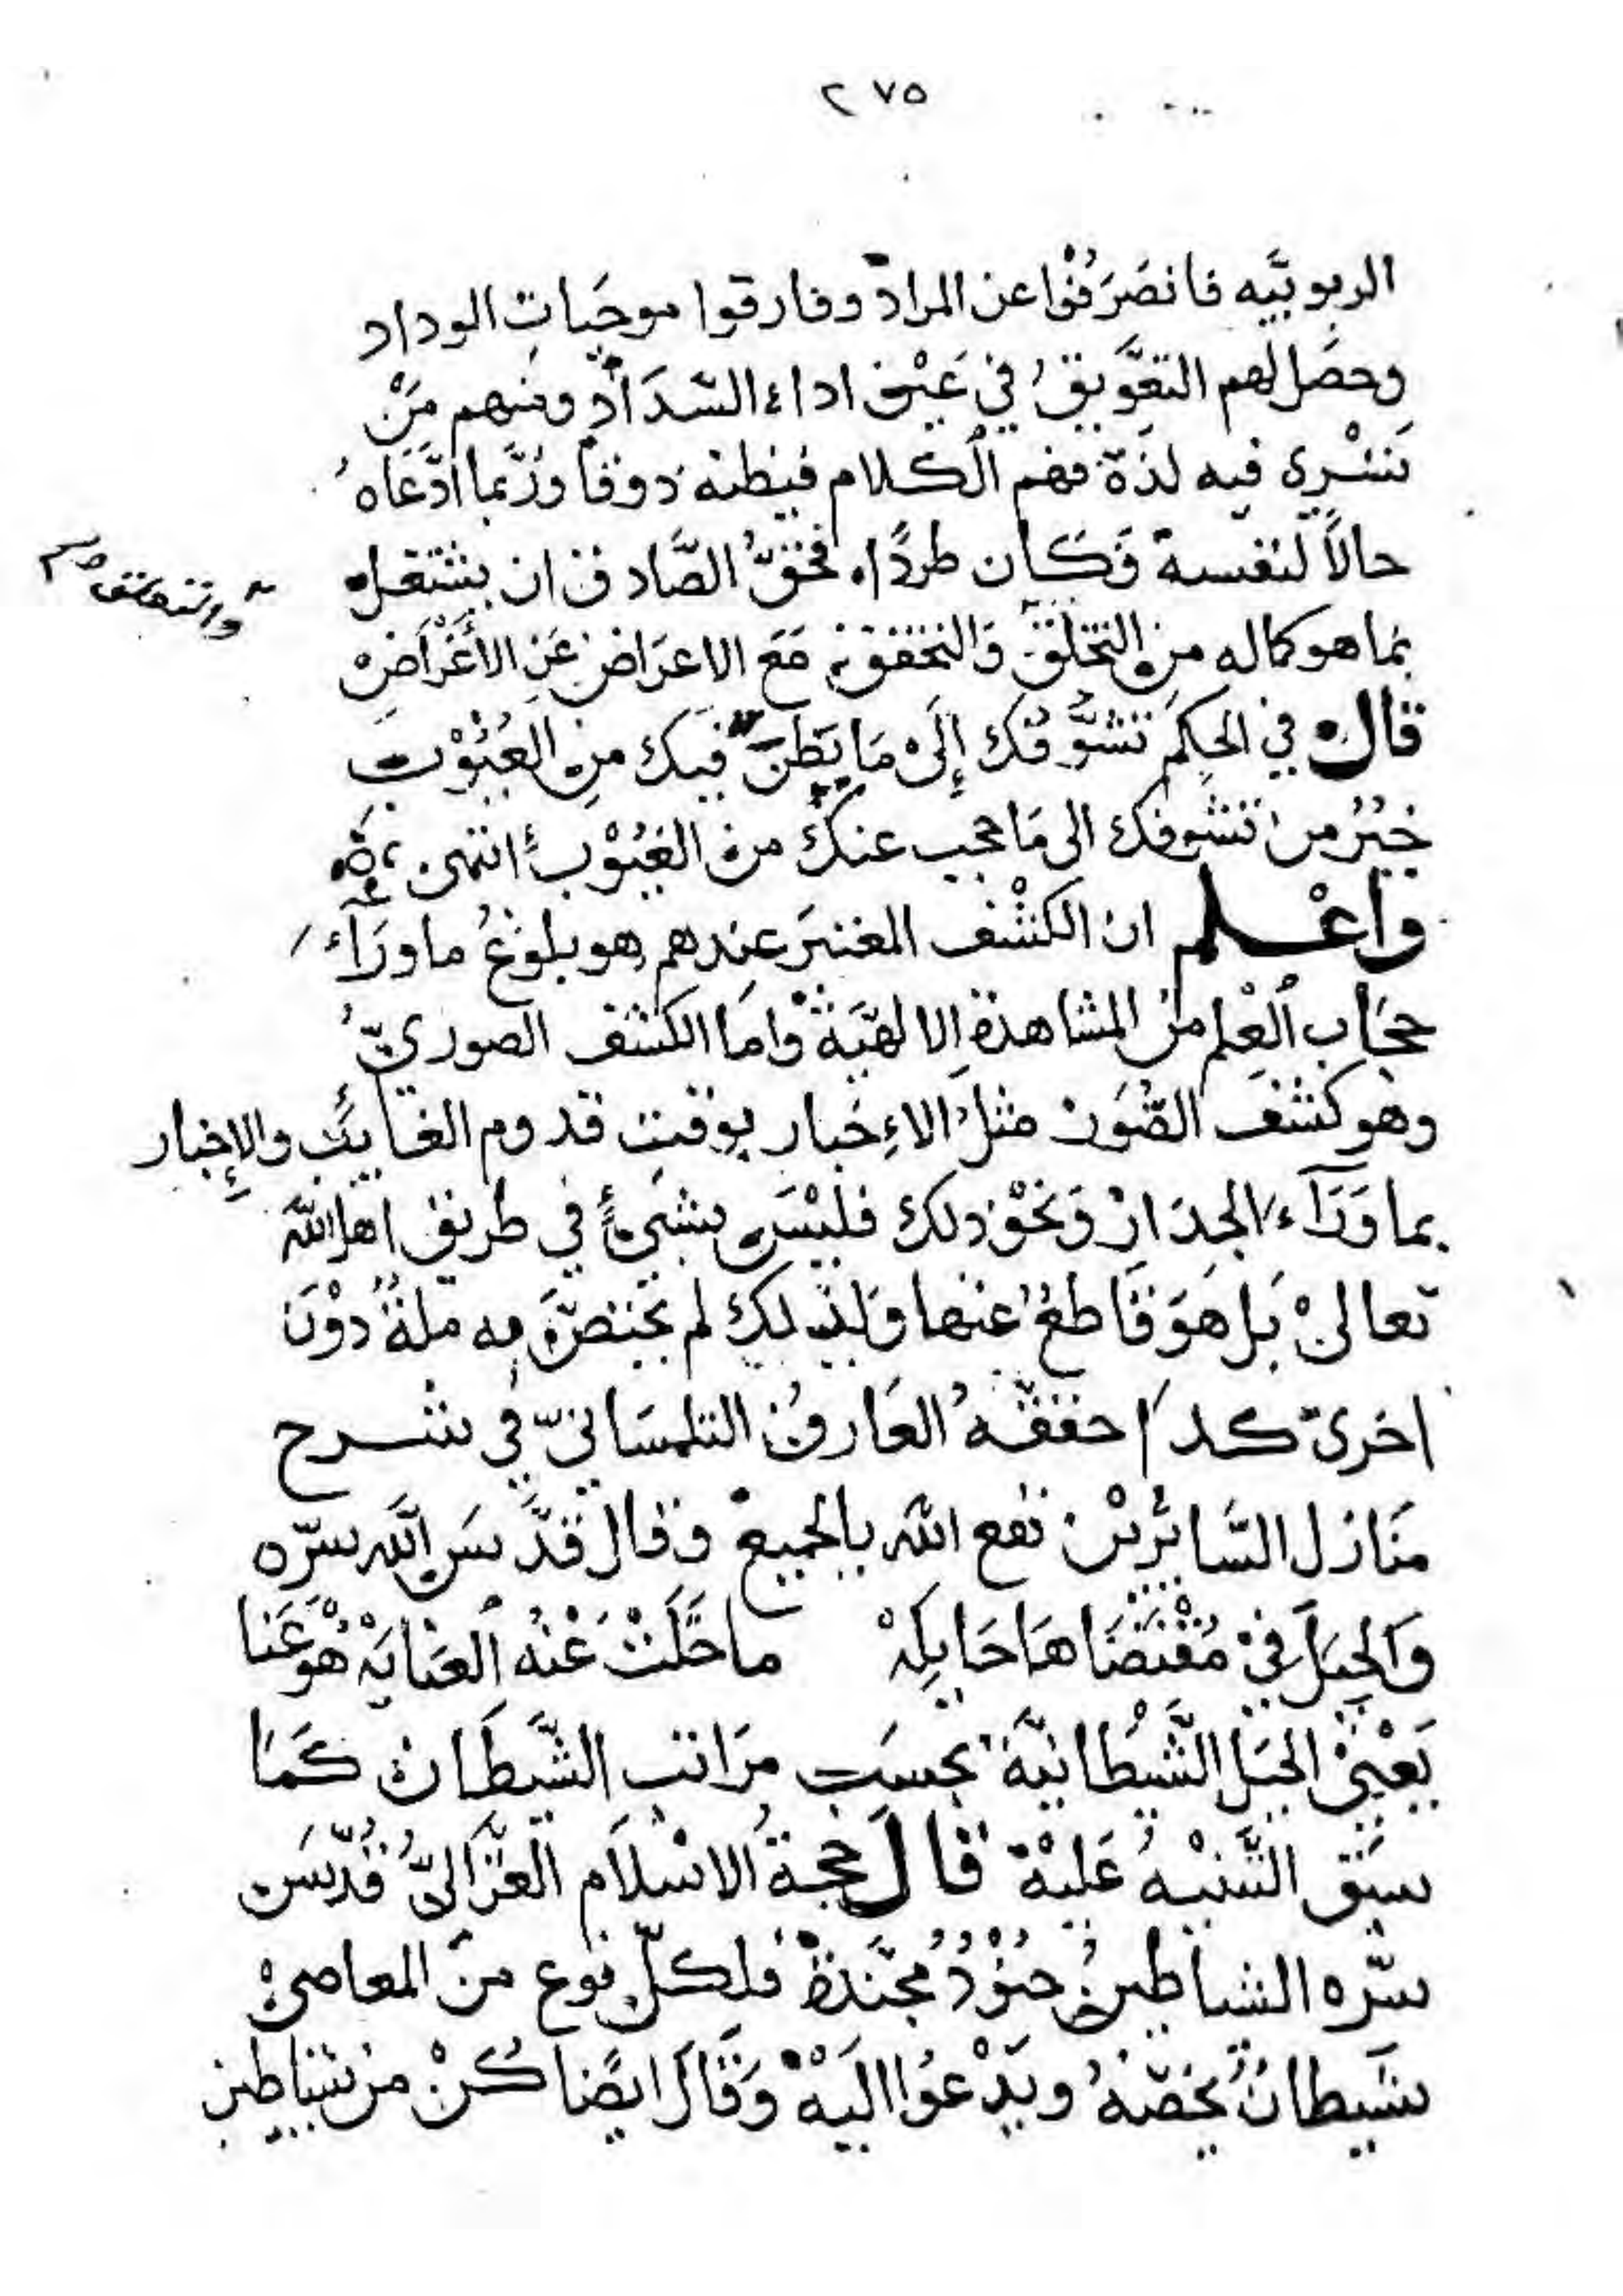 ٢٧٥
الربوبيَّه فانصَرَفُوْا عن المراد وفارقوا موجَبات الوداد
وحصَل لهم التعَّويق في عَيْن اداء السَّدَاد ومنهم مَنْ
تَسْرِي فيه لذة فهم الكلام فيظنه ذوقاً ورُبَّما ادَّعَاهُ
حالاً لنفسه وَكان طردًا، فحَقُّ الصَّادق ان يشتغل
بما هو كماله مِن التخلّق وَالتحقق مَعَ الاعرَاض عَنِ الأَغْرَاض
والتعلق صح
قال في الحِكَم تَشَوُّفُك إلَىْ مَا بَطَنَ فيك مِن العُيُوْبِ
خيْرُ من تشوفك الى مَا حجب عنكَ من الغيُوْب انتهى
واعْلم ان الكشْف المعتبَر عندهم هو بلوغُ ما ورَآء
حجَاب العِلم من المشاهدة الالهيَّة وَامَا الكشف الصوريّ
وهو كشف الصُّوَر مثلُ الاءِخبار بوقت قدوم الغايبْ والإخبار
بما وَرَآءَ الجدَارْ وَنحْوْ ذلك فلَيْسَ بشئٍ في طريق اهل اللهَ
تعالىْ بَل هَوَ قَاطعُ عَنها وَلذلك لم يختصَّ به ملةُ دوْنَ
اخرىَ كذا حققهُ العَارفُ التلمسَانيّ في شرح
مَنَازل السَّائرْين نفع الله بالجميع وقال قدَّسَ الله سرّه
وَالحِيَل فيْ مُقْتضَاهَا حَايِكهْ   ما حَلَّتْ عَنْهُ العنَايَهْ هُوْ عَنا
يَعْنيْ الحيَل الشَّيْطانيَّة بحسَب مرَاتب الشَّيطَان كَمَا
سبَق التَّنبيْهُ عَليْهْ قال حجةُ الاسْلاَم الغزَالىّ قُدّسَ
سرّه الشياطين جنوْدُ مجَنَّدة فلِكلّ نوع من المعاصيْ
شَيطانُ يخصّهُ ويَدْعُوا اليَهْ وَقَالَ ايضًا كُنْ من شياطين